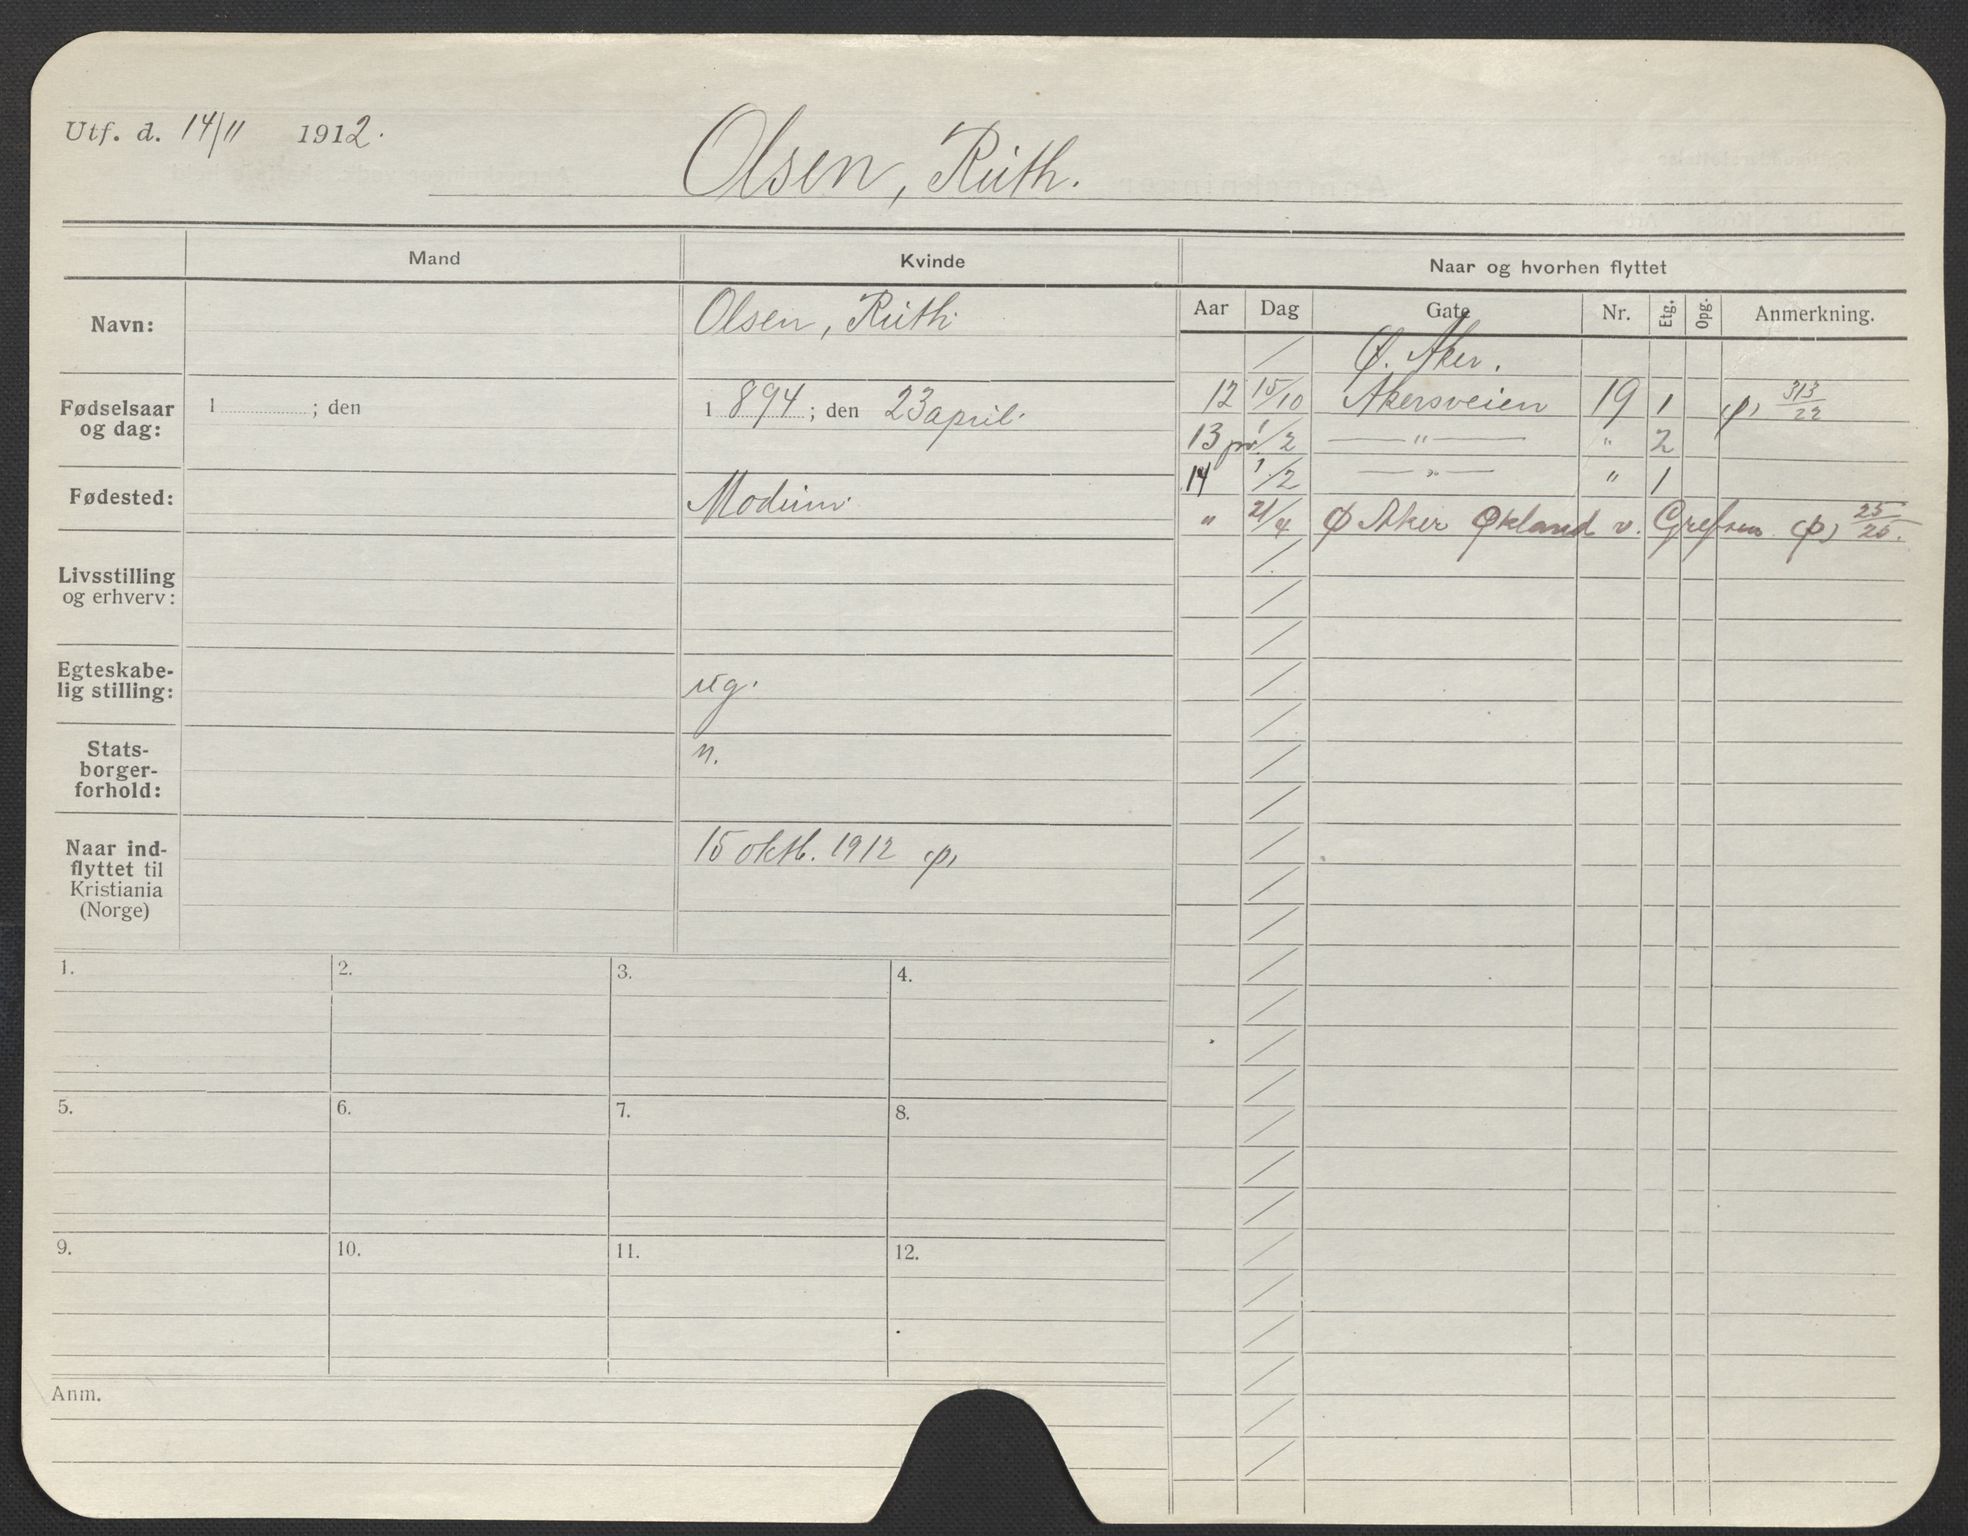 Utf. d. 14/11 1912.
Olsen, Ruth.
Mand
Kvinde
Naar og hvorhen flyttet
Navn:
Olsen, Ruth.
Aar Dag Gate Nr. Etg. Opg. Anmerkning.
Ø. Aker.
Fødselsaar
og dag:
1 ; den
1 894 ; den 23 april.
12 15/10 Akersveien 19 1 p) 313/22
13 pr 1/2 — " — " 2
14 1/2 — " — " 1
Fødested:
Modum.
" 21/4 Ø Aker Økland v. Grefsen p) 25/25.
Livsstilling
og erhverv:
Egteskabe-
lig stilling:
ug.
Stats-
borger-
forhold:
n.
Naar ind-
flyttet til
Kristiania
(Norge)
15 oktb. 1912 p)
1. 2. 3. 4.
5. 6. 7. 8.
9. 10. 11. 12.
Anm.